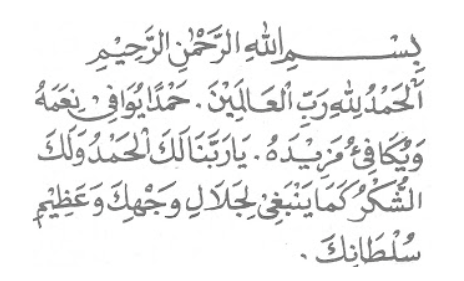 بِسْمِ اللهِ الرَّحْمٰنِ الرَّحِيْمِ
اَلْحَمْدُ لِلّٰهِ رَبِّ الْعَالَمِيْنَ . حَمْدًا يُوَافِى نِعَمَهُ
وَيُكَافِئُ مَزِيْدَهُ . يَارَبَّنَا لَكَ الْحَمْدُ وَلَكَ
الشُّكْرُ كَمَا يَنْبَغِى لِجَلَالِ وَجْهِكَ وَعَظِيْمِ
سُلْطَانِكَ .